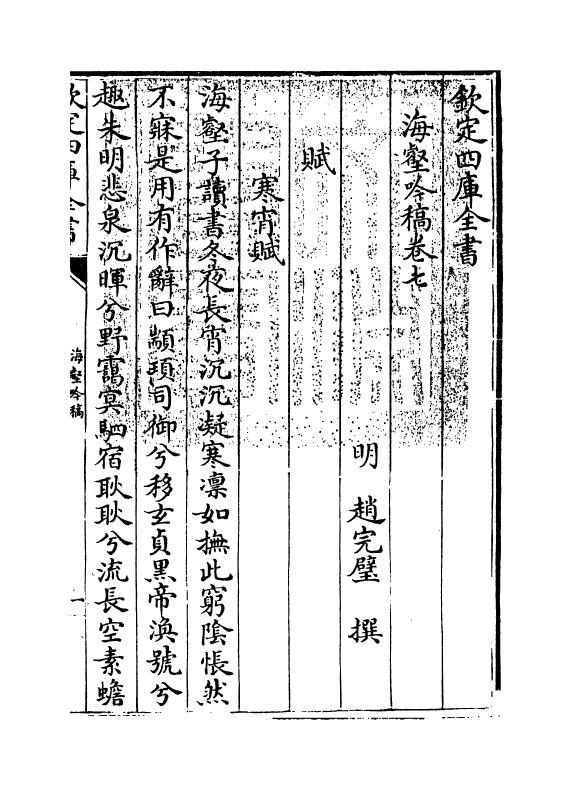 欽定四庫全書
海壑吟稿卷七
明 趙完璧 撰
賦
寒宵賦
海壑子讀書冬夜長宵沉沉凝寒凛如撫此窮陰悵然
不寐是用有作辭曰顓頊司御兮移玄貞黑帝渙號兮
趣朱明悲泉沉暉兮野靄冥駟宿耿耿兮流長空素蟾
欽定四庫全書
海壑吟稿
一